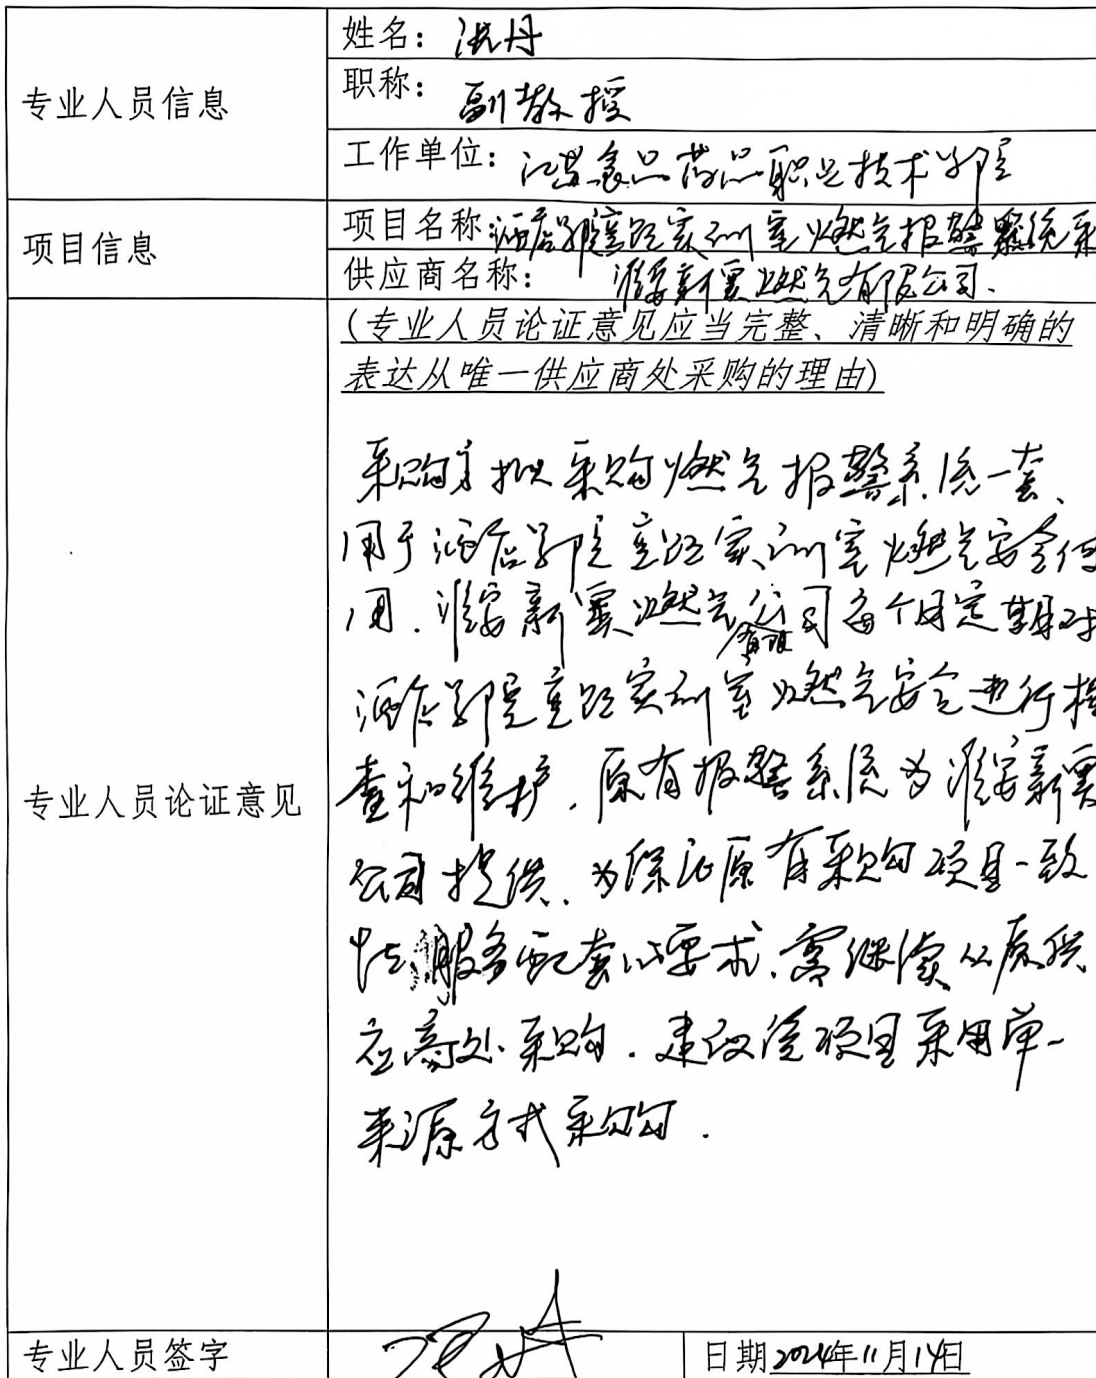 专业人员信息
姓名：洪丹
职称：副教授
工作单位：江苏食品药品职业技术学院
项目信息
项目名称：酒店学院烹饪实训室燃气报警系统采
供应商名称：淮安新奥燃气有限公司.
专业人员论证意见
(专业人员论证意见应当完整、清晰和明确的
表达从唯一供应商处采购的理由)
采购方拟采购燃气报警系统一套、
用于酒店学院烹饪实训室燃气安全使
用.淮安新奥燃气有限公司每个月定期对
酒店学院烹饪实训室燃气安全进行检
查和维护.原有报警系统为淮安新奥
公司提供.为保证原有采购项目一致
性、服务配套的要求.需继续从原供
应商处采购.建议该项目采用单一
来源方式采购.
专业人员签字
日期2024年11月14日